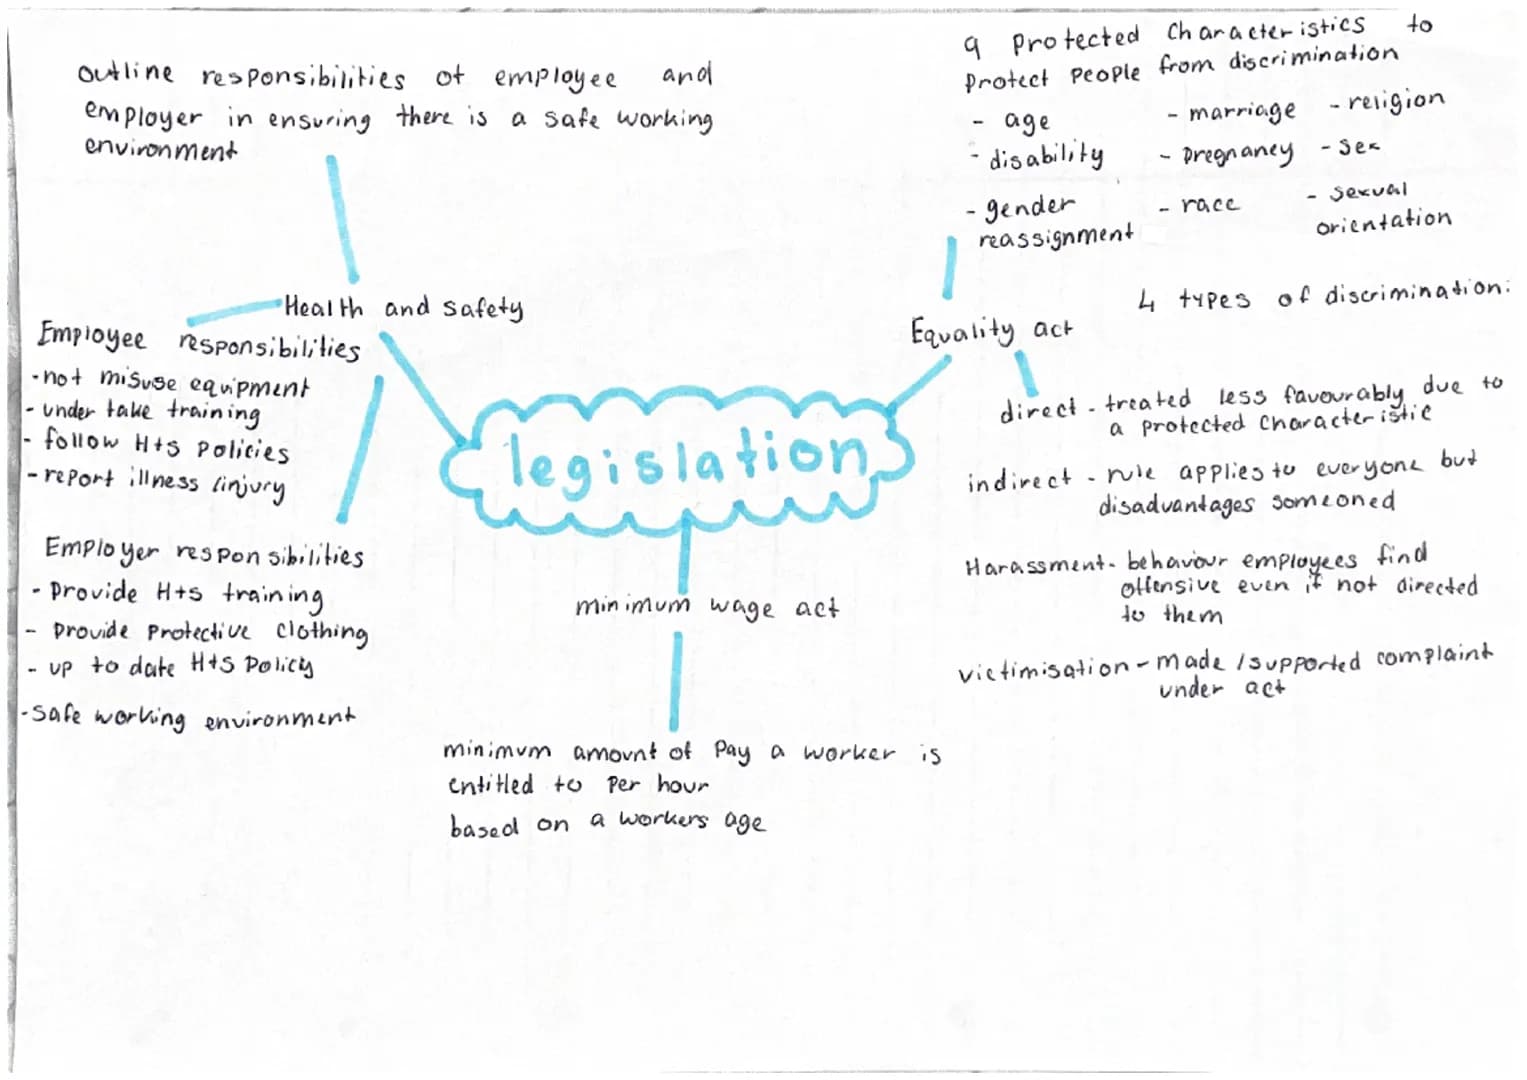 outline responsibilities of employee and
employer in ensuring there is a safe working
environment
Health and safety
Employee responsibilities
-not misuse equipment
- under take training
- follow H+S policies
-report illness /injury
Employer responsibilities
- Provide H+S training
- provide protective clothing
- up to date H+S Policy
-safe working environment
legislation
minimum wage act
minimum amount of Pay a worker is
entitled to Per hour
based on a workers age
9 Protected Characteristics to
Protect People from discrimination
- age - marriage - religion
- disability - pregnancy - sex
- gender - race - sexual
reassignment orientation
Equality act
4 types of discrimination:
direct - treated less favourably due to
a protected characteristic
indirect - rule applies to everyone but
disadvantages someoned
Harassment - behaviour employees find
offensive even if not directed
to them
victimisation - made /supported complaint
under act